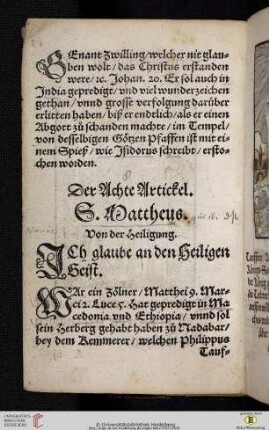 GEnant Zwilling/welcher nit glau-
ben wolt/das Christus erstanden
were/ıc. Johan. 20. Er sol auch in
India gepredigt/vnd viel wunderzeichen
gethan/vnnd grosse verfolgung darüber
erlitten haben/biß er endtlich/als er einen
Abgott zů schanden machte/im Tempel/
von desselbigen Götzen Pfaffen ist mit ei-
nem Spieß/wie Isidorus schreibt/ersto-
chen worden.
Der Achte Artickel.
S. Mattheus.
Von der Heiligung.
ICh glaube an den Heiligen
Geist.
WAr ein Zölner/Matthei 9. Mar-
ci 2. Luce 5. Hat gepredigt in Ma
cedonia vnd Ethiopia/vnnd sol
sein Herberg gehabt haben zů Nadabar/
bey dem Kemmerer/welchen Philippus
Tauf-
UNIVERSITÄTS-
BIBLIOTHEK
HEIDELBERG
© Universitätsbibliothek Heidelberg